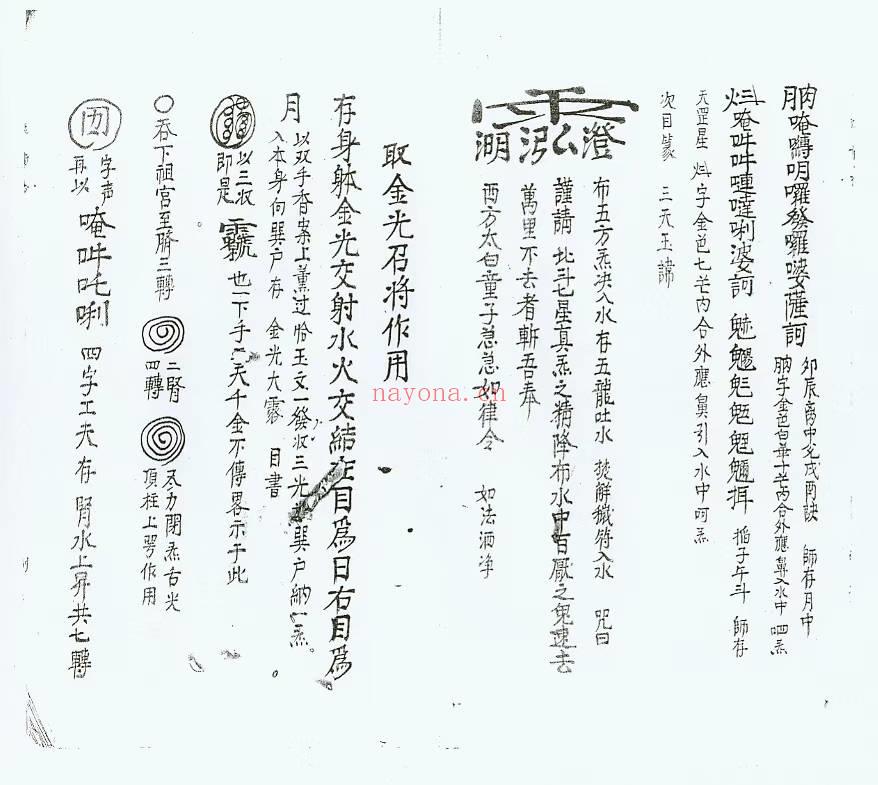 唵嚩吽囉發囉嘙薩訶 卯辰离中戈戌丙訣 師存月中
字金色白華十芒內合外應鼻入水中 呬炁
唵吽吽嗹噠唎婆訶 魒 掐子午斗 師存
天罡星 字金色七芒內合外應鼻引入水中呵炁
次目篆 三天玉諱
澄泓湖
布五方炁决入水 存五龍吐水 焚解穢符入水 咒曰
謹請 北斗七星真炁之精降布水中百厭之鬼速去
萬里不去者斬吾奉
西方太白童子急急如律令 如法洒净
取金光召将作用
存身躰金光交射水火交結左目爲日右目爲
月 以双手香案上薰过 恰玉文一發收三光 巽户納一炁。
入本身向巽户存 金光大震 目書
以三收
即是 也一下手 天千金不傳畧示于此
〇吞下祖宫至臍三轉 二腎
四轉 尽力閉炁舌光
頂柱上腭作用
字声
再以 唵吽吒唎 四字工夫存 腎水上昇共七轉
nayona.cn